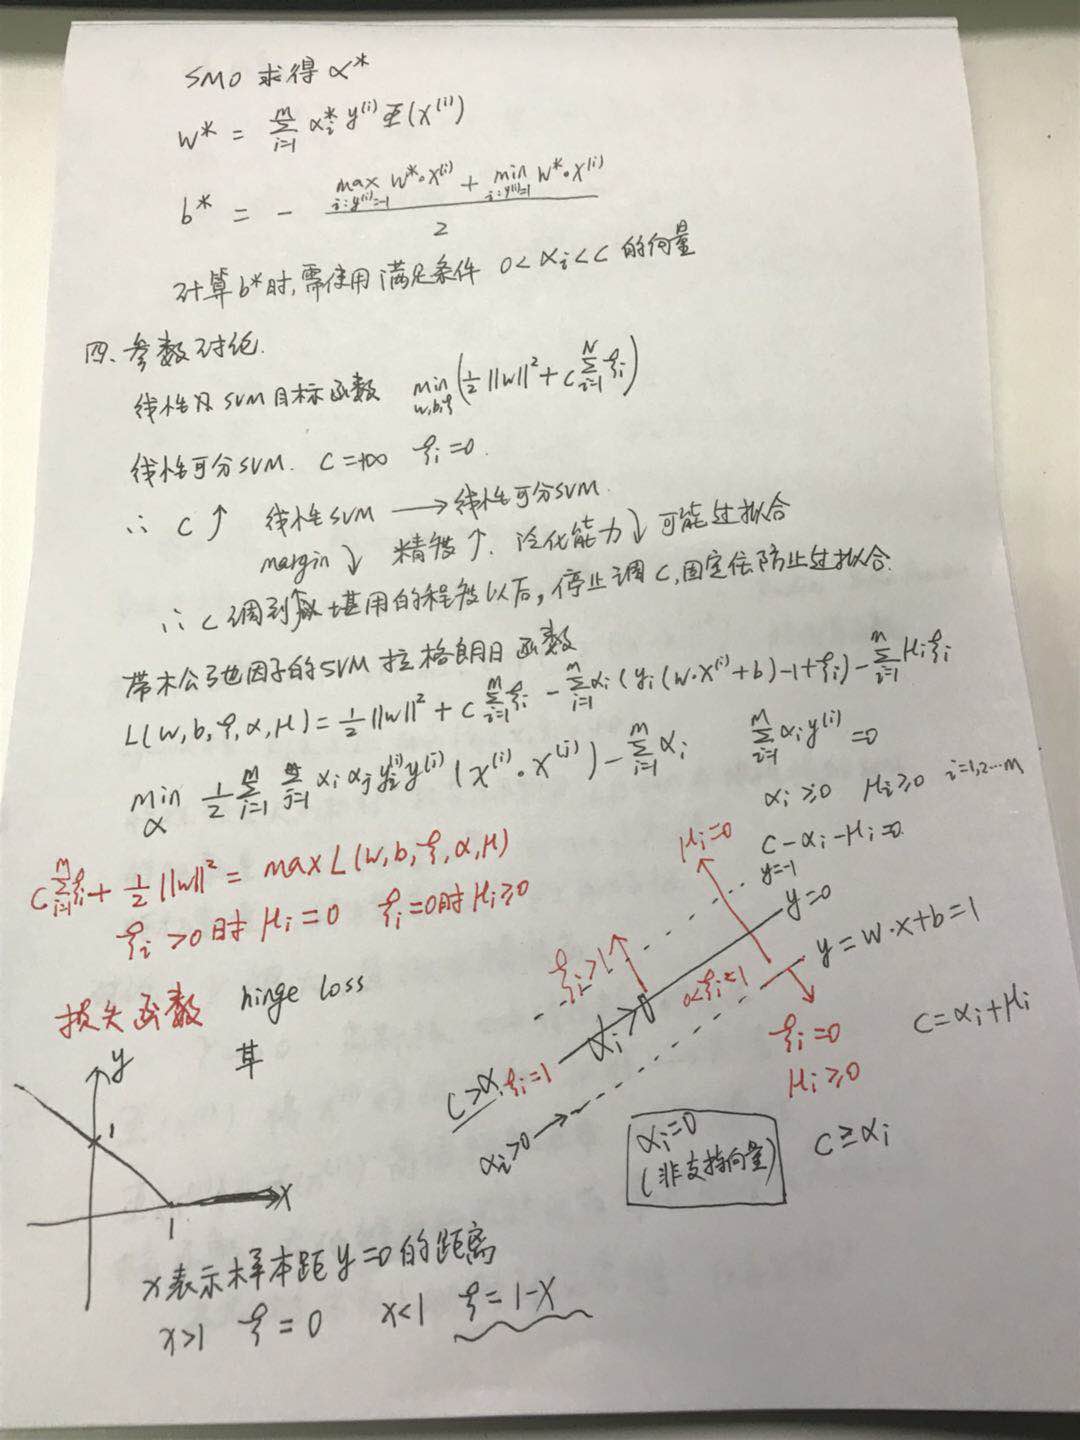 SMO 求得 α*
w* = Σ_{i=1}^{m} α_i* y^{(i)} Φ(x^{(i)})
b* = - (max_{i:y^{(i)}=-1} w*·x^{(i)} + min_{i:y^{(i)}=1} w*·x^{(i)}) / 2
计算b*时,需使用满足条件 0<α_i<C 的向量
四、参数讨论.
线性 SVM目标函数 min_{w,b,ξ} (½||w||² + C Σ_{i=1}^{N} ξ_i)
线性可分SVM. C=+∞ ξ_i=0.
∴ C↑ 线性SVM → 线性可分SVM.
margin↓ 精度↑. 泛化能力↓ 可能过拟合
∴ C调到 堪用的程度以后, 停止调C,固定住防止过拟合.
带松弛因子的SVM 拉格朗日函数
L(w,b,ξ,α,μ) = ½||w||² + C Σ_{i=1}^{m} ξ_i - Σ_{i=1}^{m} α_i (y_i(w·x^{(i)}+b)-1+ξ_i) - Σ_{i=1}^{m} μ_iξ_i
min_α ½ Σ_{i=1}^{m} Σ_{j=1} α_i α_j y^{(i)} y^{(i)} (x^{(i)}·x^{(j)}) - Σ_{i=1}^{m} α_i
Σ_{i=1}^{m} α_i y^{(i)} = 0
α_i ≥0 μ_i≥0 i=1,2…m
C-α_i-μ_i=0
C Σ_{i=1}^{m} ξ_i + ½||w||² = max L(w,b,ξ,α,μ)
ξ_i >0时 μ_i=0 ξ_i=0时 μ_i≥0
μ_i=0
y=-1
y=0
y=w·x+b=1
ξ_i>1
α_i>0
0<ξ_i<1
ξ_i=0
μ_i≥0
C=α_i+μ_i
C>α_i
ξ_i=1
α_i>0
α_i=0
(非支持向量)
C≥α_i
损失函数 hinge loss
y
1
1
x
x表示样本距y=0的距离
x>1 ξ=0 x<1 ξ=1-x